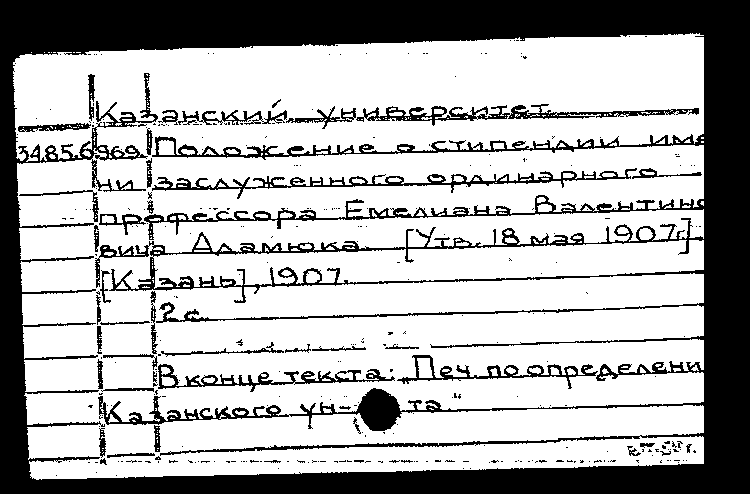 Казанский университет.
34.85.6 969. Положение о стипендии име
ни заслуженного ординарного
профессора Емелиана Валентино
вича Адамюка. [Утв. 18 мая 1907г.]
[Казань], 1907.
2 с.
В конце текста: „Печ. по определени
Казанского ун- та."